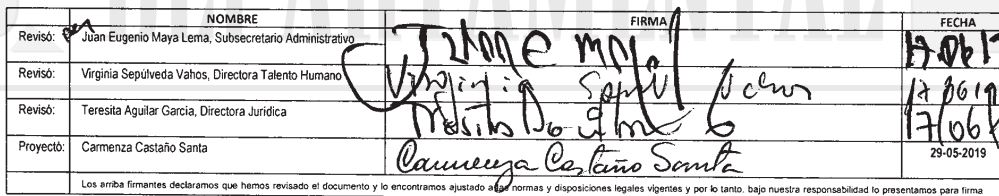 NOMBRE FIRMA FECHA
Revisó: Juan Eugenio Maya Lema, Subsecretario Administrativo 17.06.19
Revisó: Virginia Sepúlveda Vahos, Directora Talento Humano Virginia Sepul Vahos 17 0619
Revisó: Teresita Aguilar Garcia, Directora Jurídica 17/06/
Proyectó: Carmenza Castaño Santa Carmenza Castaño Santa 29-05-2019
Los arriba firmantes declaramos que hemos revisado el documento y lo encontramos ajustado a las normas y disposiciones legales vigentes y por lo tanto, bajo nuestra responsabilidad lo presentamos para firma